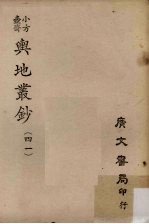 小方壺齋
輿地叢鈔(四一)
廣文書局印行